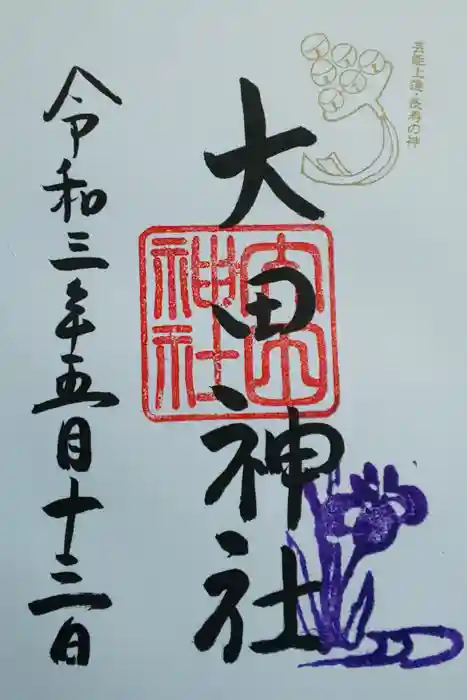 芸能上達・長寿の神
大田神社
大田神社
令和三年五月十三日